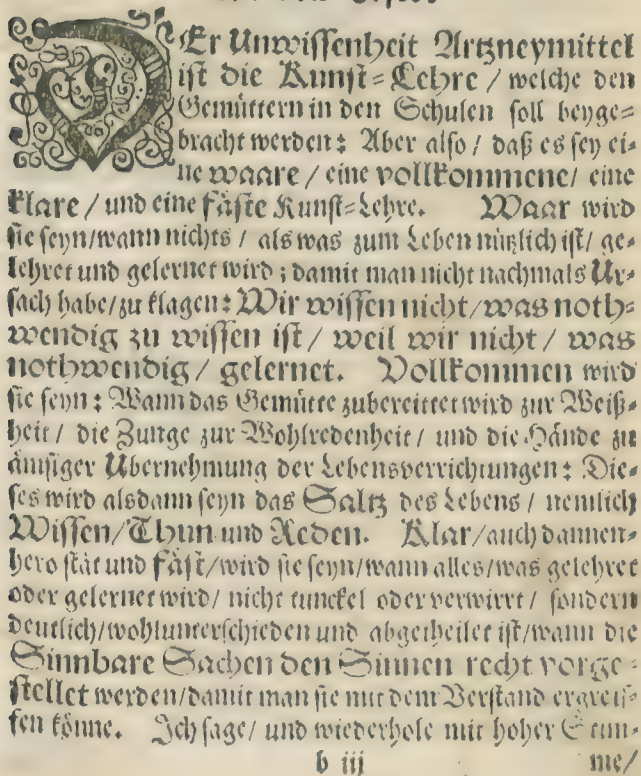 DEr Unwissenheit Artzneymittel
ist die Kunst=Lehre / welche den
Gemüttern in den Schulen soll beyge=
bracht werden: Aber also / daß es sey ei=
ne waare / eine vollkommene / eine
klare / und eine fäste Kunst=Lehre. Waar wird
sie seyn/wann nichts / als was zum Leben nützlich ist / ge=
lehret und gelernet wird ; damit man nicht nachmals Ur=
sach habe/zu klagen: Wir wissen nicht/was noth=
wendig zu wissen ist / weil wir nicht / was
nothwendig / gelernet. Vollkommen wird
sie seyn : Wann das Gemütte zubereittet wird zur Weiß=
heit / die Zunge zur Wohlredenheit / und die Hände zu
ämsiger Ubernehmung der Lebensverrichtungen: Die=
ses wird alsdann seyn das Saltz des Lebens / nemlich
Wissen/Thun und Reden. Klar/auch dannen=
hero stät und fäst/wird sie seyn/wann alles/was gelehret
oder gelernet wird/ nicht tunckel oder verwirrt / sondern
deutlich/wohlunterschieden und abgetheilet ist/wann die
Sinnbare Sachen den Sinnen recht vorge=
stellet werden/damit man sie mit dem Verstand ergreif=
fen könne. Ich sage/ und wiederhole mit hoher Stim=
b iij me/